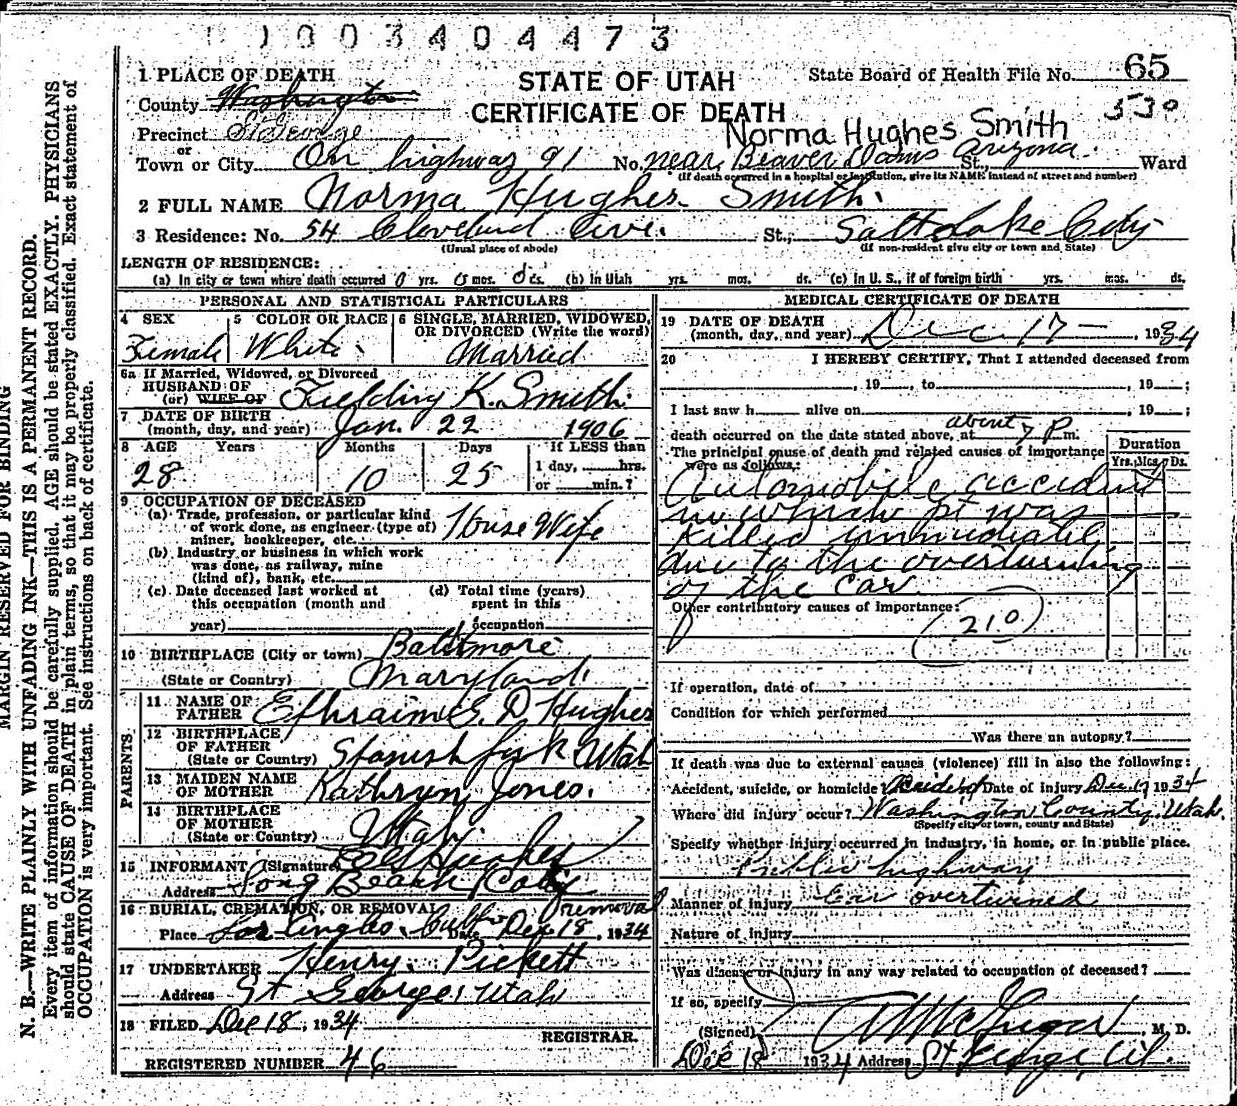 1003404473
STATE OF UTAH
CERTIFICATE OF DEATH
State Board of Health File No. 65
530
1 PLACE OF DEATH
County Washington
Precinct St George
or
Town or City On highway 91 No. near Beaver Dams Arizona. St., Ward
(If death occurred in a hospital or institution, give its NAME instead of street and number)
Norma Hughes Smith
2 FULL NAME Norma Hughes Smith.
3 Residence: No. 54 Cleveland Ave. St., Salt Lake City
(Usual place of abode) (If non-resident give city or town and, State)
LENGTH OF RESIDENCE:
(a) In city or town where death occurred 0 yrs. 0 mos. 0 ds. (b) In Utah yrs. mos. ds. (c) In U. S., if of foreign birth yrs. mos. ds.
PERSONAL AND STATISTICAL PARTICULARS
4 SEX
Female
5 COLOR OR RACE
White
6 SINGLE, MARRIED, WIDOWED,
OR DIVORCED (Write the word)
Married
6a If Married, Widowed, or Divorced
HUSBAND OF
(or) WIFE OF Fielding K. Smith.
7 DATE OF BIRTH
(month, day, and year) Jan. 22 1906
8 AGE Years Months Days If LESS than
28 10 25 1 day, hrs.
or min.?
9 OCCUPATION OF DECEASED
(a) Trade, profession, or particular kind
of work done, as engineer (type of)
miner, bookkeeper, etc. House Wife
(b) Industry or business in which work
was done, as railway, mine
(kind of), bank, etc.
(c) Date deceased last worked at
this occupation (month and
year)
(d) Total time (years)
spent in this
occupation
10 BIRTHPLACE (City or town) Baltimore
(State or Country) Maryland.
PARENTS
11 NAME OF
FATHER Ephraim G. D Hughes
12 BIRTHPLACE
OF FATHER
(State or Country) Spanish fork Utah
13 MAIDEN NAME
OF MOTHER Kathryn Jones.
14 BIRTHPLACE
OF MOTHER
(State or Country) Utah.
15 INFORMANT (Signature) Hughes
Address Long Beach
16 BURIAL, CREMATION, OR REMOVAL removal
Place Los Angles. Calif Date Dec 18, 1934
17 UNDERTAKER Henry. Pickett
Address St George, Utah
18 FILED Dec 18, 1934
REGISTRAR.
REGISTERED NUMBER 46
MEDICAL CERTIFICATE OF DEATH
19 DATE OF DEATH
(month, day, and year) Dec 17 — , 1934
20 I HEREBY CERTIFY, That I attended deceased from
, 19 , to , 19 ;
I last saw h alive on , 19 ;
death occurred on the date stated above, at about 7 P m.
The principal cause of death and related causes of importance
were as follows:
Duration
Yrs. Mos. Ds.
Automobile accident
in which pt was
killed immediatly
due to the overturning
of the car
Other contributory causes of importance:
210
If operation, date of
Condition for which performed
Was there an autopsy?
If death was due to external causes (violence) fill in also the following:
Accident, suicide, or homicide? Accident Date of injury Dec 17 1934
Where did injury occur? Washington County, Utah.
(Specify city or town, county and State)
Specify whether injury occurred in industry, in home, or in public place.
Public highway
Manner of injury Car overturned
Nature of injury
Was disease or injury in any way related to occupation of deceased?
If so, specify
(Signed) McGregor, M. D.
Dec 18 1934 Address St George, Ut.
MARGIN RESERVED FOR BINDING
N. B.—WRITE PLAINLY WITH UNFADING INK—THIS IS A PERMANENT RECORD.
Every item of information should be carefully supplied. AGE should be stated EXACTLY. PHYSICIANS
should state CAUSE OF DEATH in plain terms, so that it may be properly classified. Exact statement of
OCCUPATION is very important. See instructions on back of certificate.